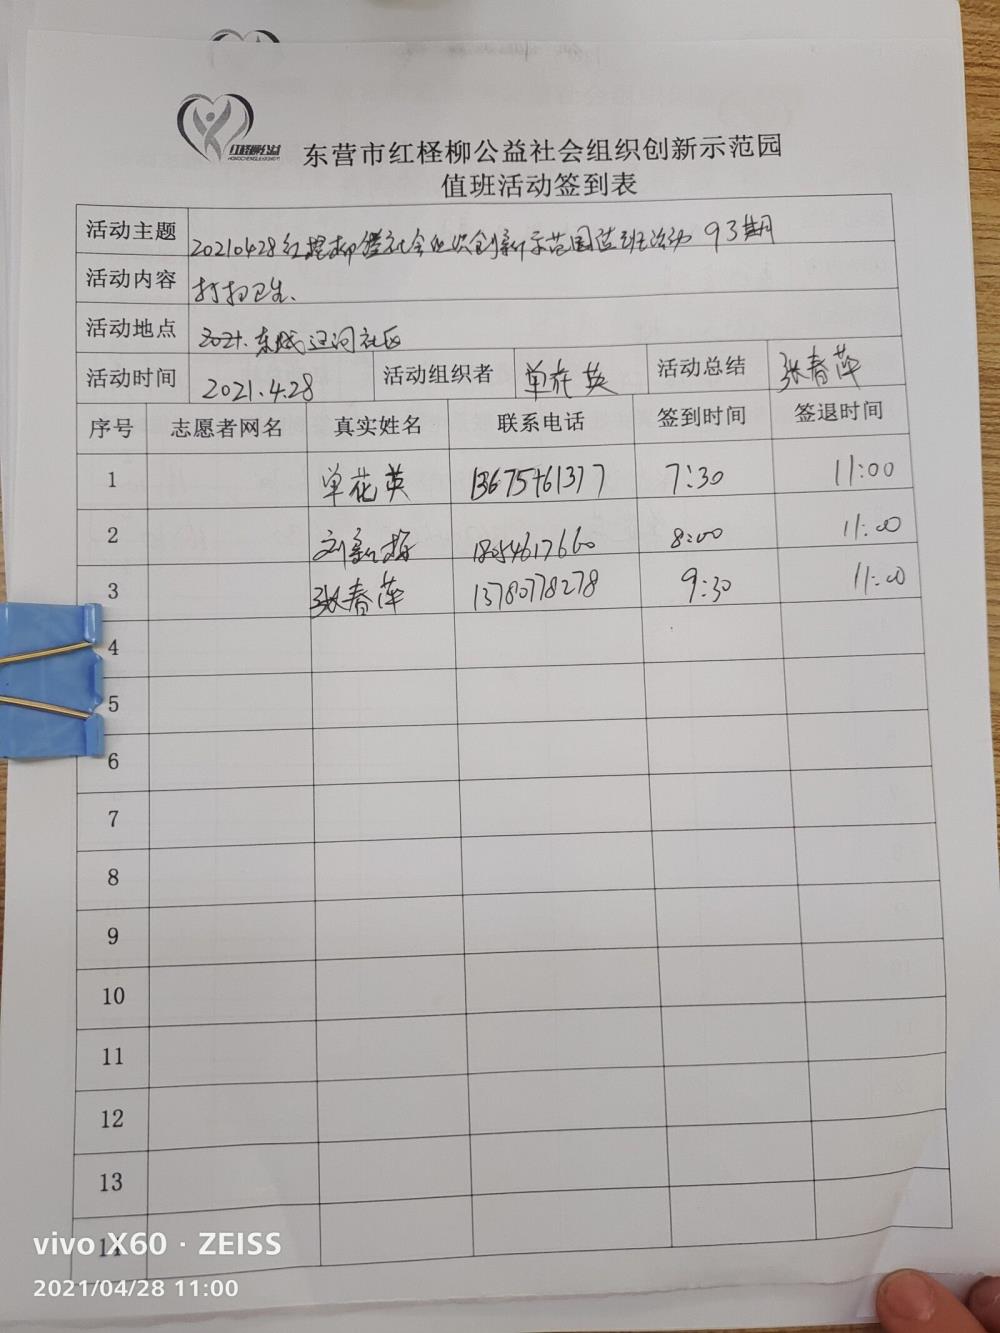 红柽柳公益
东营市红柽柳公益社会组织创新示范园
值班活动签到表
活动主题 20210428红柽柳 社会组织创新示范园值班活动 93期
活动内容 打扫卫生、
活动地点 东城辽河社区
活动时间 2021.4.28 活动组织者 单花英 活动总结 张春萍
序号 志愿者网名 真实姓名 联系电话 签到时间 签退时间
1 单花英 13675461377 7:30 11:00
2 刘新梅 18054617660 8:00 11:00
3 张春萍 13780778278 9:30 11:00
4
5
6
7
8
9
10
11
12
13
14
vivo X60 · ZEISS
2021/04/28 11:00